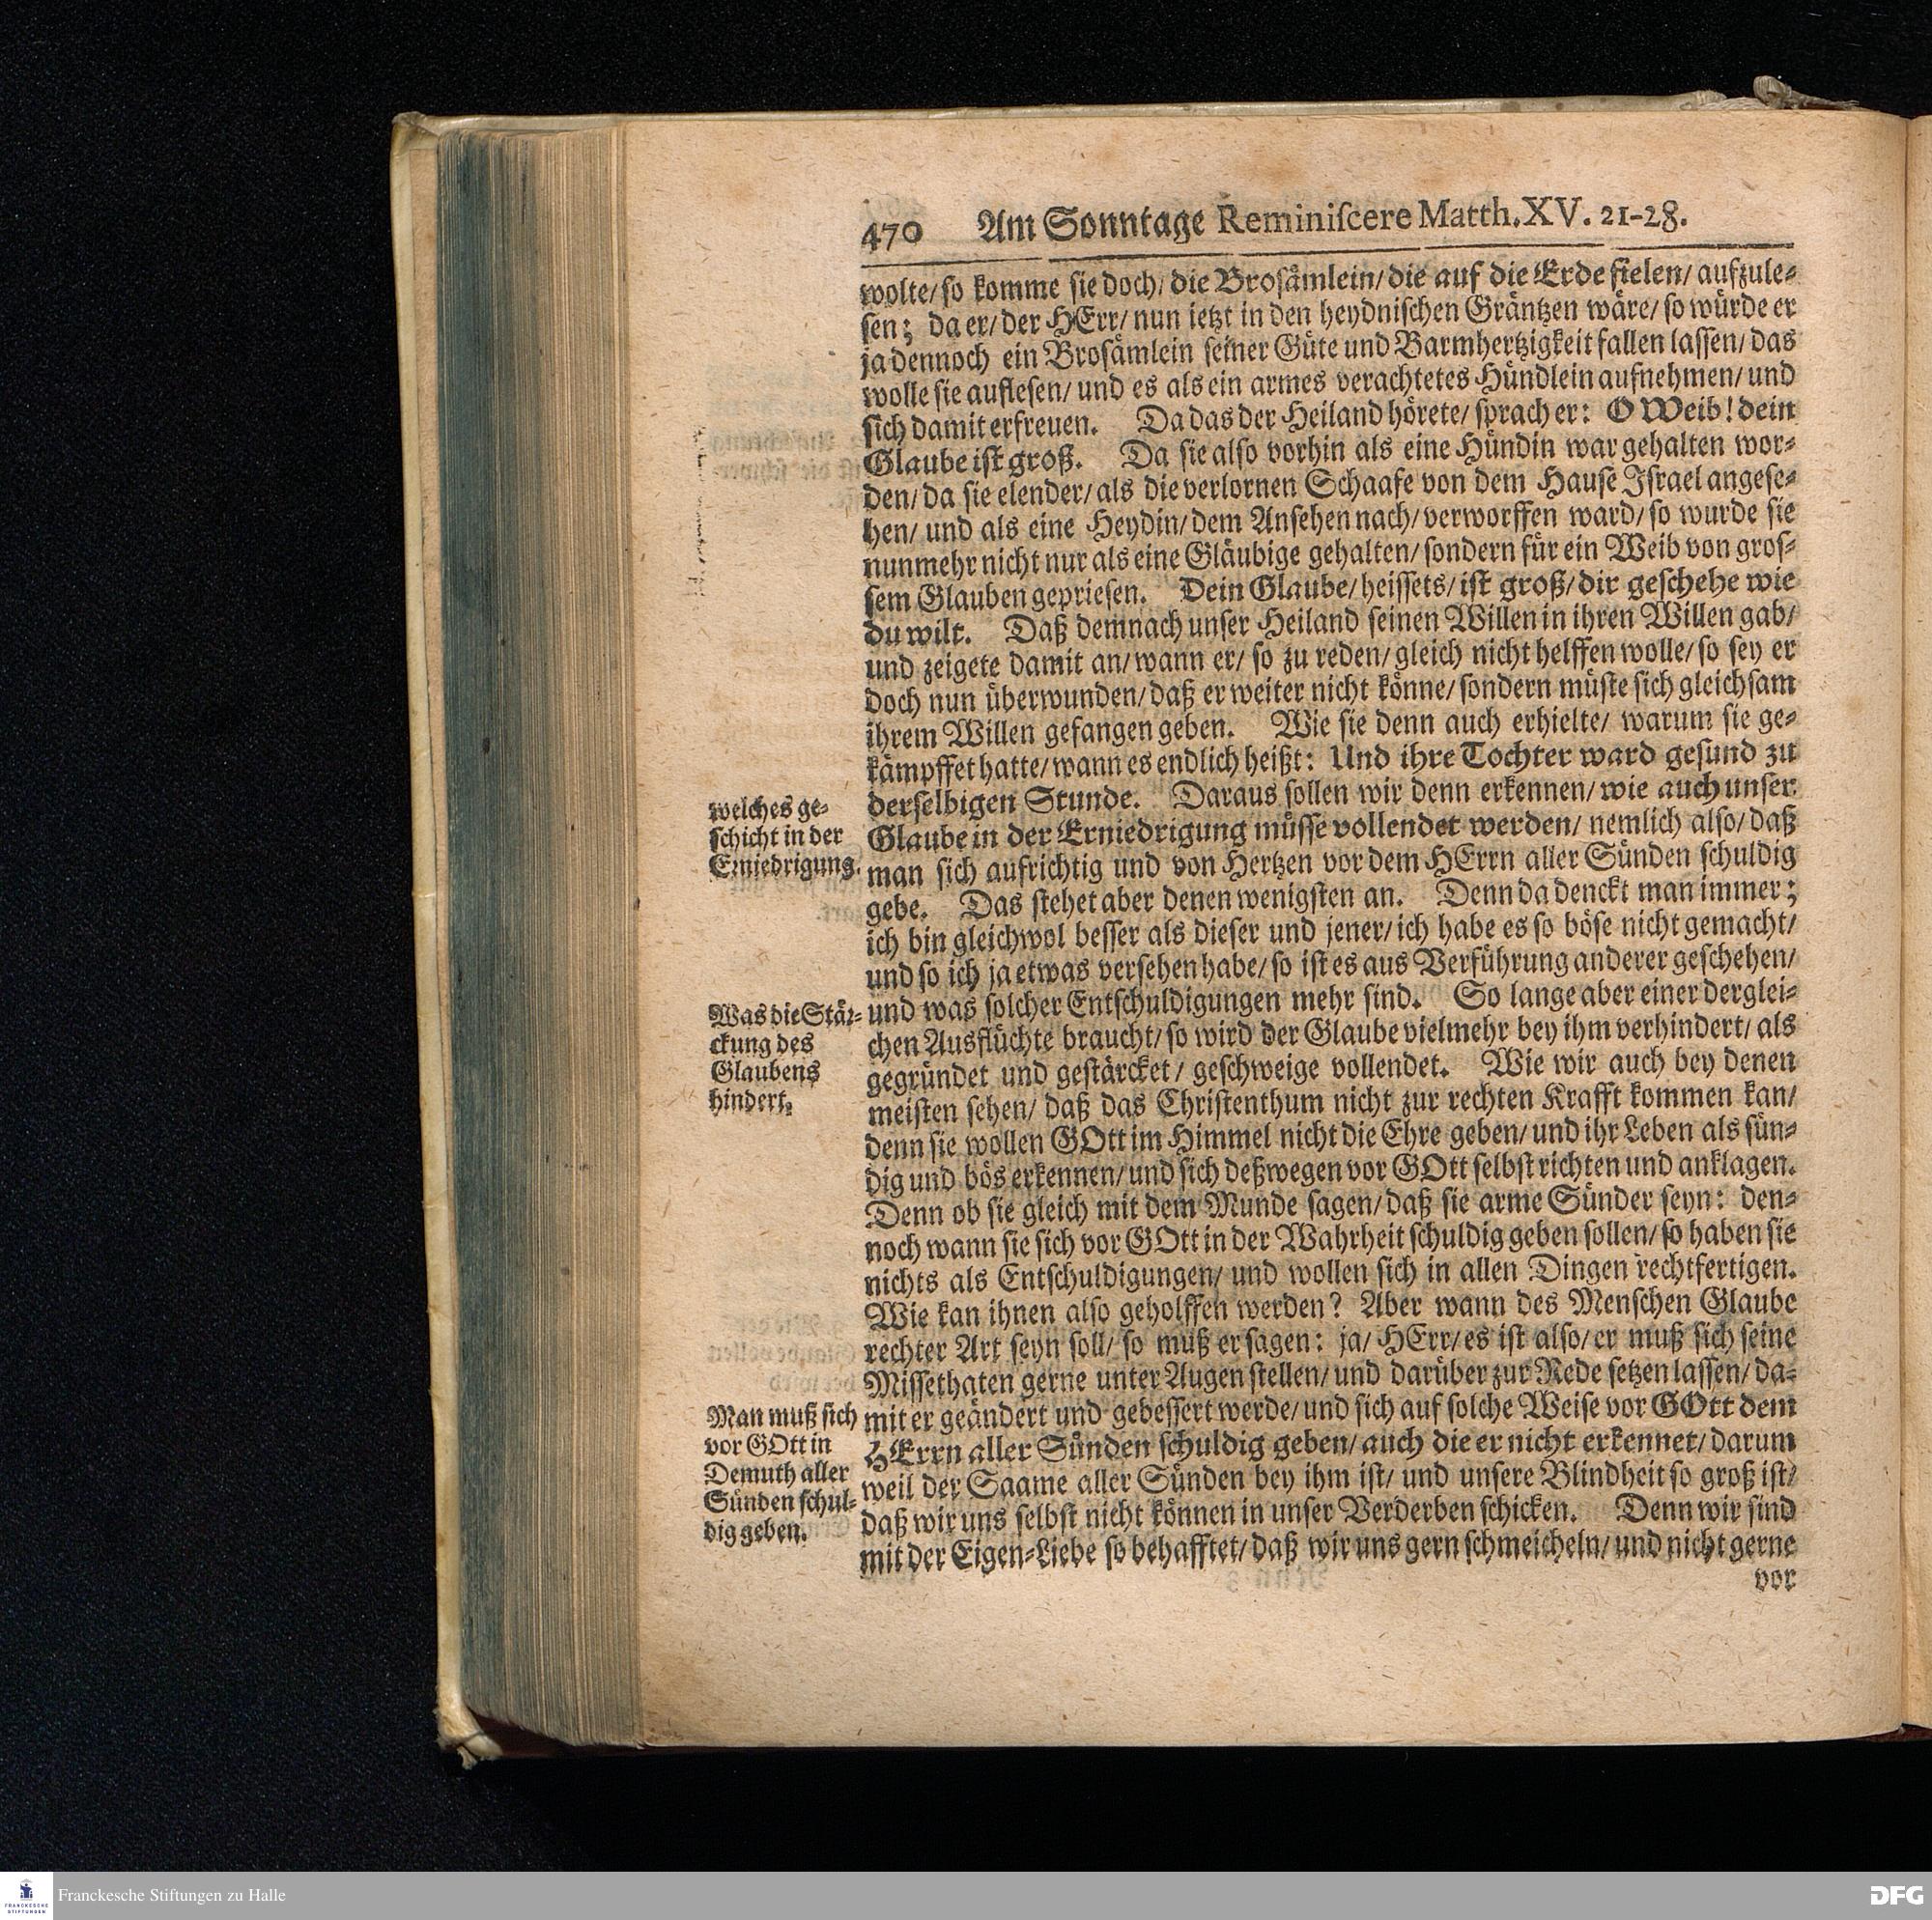 470 Am Sonntage Reminiſcere Matth. XV. 21-28.
wolte/ ſo komme ſie doch/ die Broſämlein/ die auf die Erde fielen/ aufzule-
ſen; da er/ der HErr/ nun ietzt in den heydniſchen Gräntzen wäre/ ſo würde er
ja dennoch ein Broſämlein ſeiner Güte und Barmhertzigkeit fallen laſſen/ das
wolle ſie aufleſen/ und es als ein armes verachtetes Hündlein aufnehmen/ und
ſich damit erfreuen. Da das der Heiland hörete/ ſprach er: O Weib! dein
Glaube iſt groß. Da ſie alſo vorhin als eine Hündin war gehalten wor-
den/ da ſie elender/ als die verlornen Schaafe von dem Hauſe Iſrael angeſe-
hen/ und als eine Heydin/ dem Anſehen nach/ verworffen ward/ ſo wurde ſie
nunmehr nicht nur als eine Gläubige gehalten/ ſondern für ein Weib von groſ-
ſem Glauben geprieſen. Dein Glaube/ heiſſets/ iſt groß/ dir geſchehe wie
du wilt. Daß demnach unſer Heiland ſeinen Willen in ihren Willen gab/
und zeigete damit an/ wann er/ ſo zu reden/ gleich nicht helffen wolle/ ſo ſey er
doch nun überwunden/ daß er weiter nicht könne/ ſondern müſte ſich gleichſam
ihrem Willen gefangen geben. Wie ſie denn auch erhielte/ warum ſie ge-
kämpffet hatte/ wann es endlich heißt: Und ihre Tochter ward geſund zu
derſelbigen Stunde. Daraus ſollen wir denn erkennen/ wie auch unſer
Glaube in der Erniedrigung müſſe vollendet werden/ nemlich alſo/ daß
man ſich aufrichtig und von Hertzen vor dem HErrn aller Sünden ſchuldig
gebe. Das ſtehet aber denen wenigſten an. Denn da denckt man immer;
ich bin gleichwol beſſer als dieſer und jener/ ich habe es ſo böſe nicht gemacht/
und ſo ich ja etwas verſehen habe/ ſo iſt es aus Verführung anderer geſchehen/
und was ſolcher Entſchuldigungen mehr ſind. So lange aber einer derglei-
chen Ausflüchte braucht/ ſo wird der Glaube vielmehr bey ihm verhindert/ als
gegründet und geſtärcket/ geſchweige vollendet. Wie wir auch bey denen
meiſten ſehen/ daß das Chriſtenthum nicht zur rechten Krafft kommen kan/
denn ſie wollen GOtt im Himmel nicht die Ehre geben/ und ihr Leben als ſün-
dig und bös erkennen/ und ſich deßwegen vor GOtt ſelbſt richten und anklagen.
Denn ob ſie gleich mit dem Munde ſagen/ daß ſie arme Sünder ſeyn: den-
noch wann ſie ſich vor GOtt in der Wahrheit ſchuldig geben ſollen/ ſo haben ſie
nichts als Entſchuldigungen/ und wollen ſich in allen Dingen rechtfertigen.
Wie kan ihnen alſo geholffen werden? Aber wann des Menſchen Glaube
rechter Art ſeyn ſoll/ ſo muß er ſagen: ja/ HErr/ es iſt alſo/ er muß ſich ſeine
Miſſethaten gerne unter Augen ſtellen/ und darüber zur Rede ſetzen laſſen/ da-
mit er geändert und gebeſſert werde/ und ſich auf ſolche Weiſe vor GOtt dem
HErrn aller Sünden ſchuldig geben/ auch die er nicht erkennet/ darum
weil der Saame aller Sünden bey ihm iſt/ und unſere Blindheit ſo groß iſt/
daß wir uns ſelbſt nicht können in unſer Verderben ſchicken. Denn wir ſind
mit der Eigen-Liebe ſo behafftet/ daß wir uns gern ſchmeicheln/ und nicht gerne
vor
welches ge-
ſchicht in der
Erniedrigung.
Was die Stär-
ckung des
Glaubens
hindert.
Man muß ſich
vor GOtt in
Demuth aller
Sünden ſchul-
dig geben.
FRANCKESCHE
STIFTUNGEN
Franckesche Stiftungen zu Halle
DFG